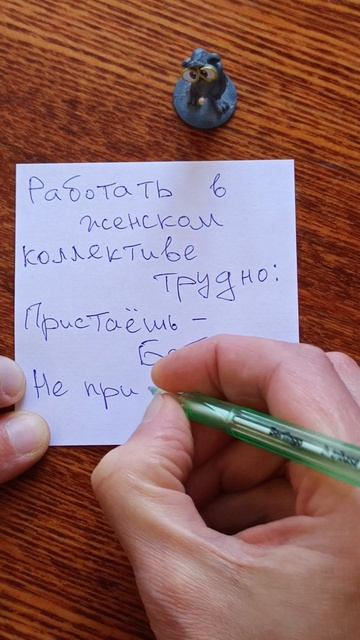 Работать в
женском
коллективе
трудно:
Пристаёшь -
Не при